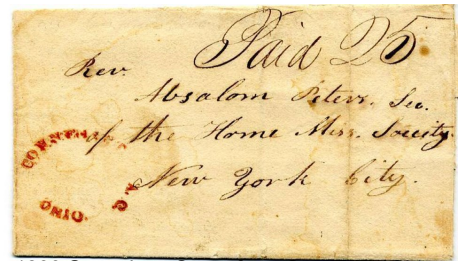 Paid 25
Rev.
Absalom Peters. Sec.
of the Home Miss. Society
New York City.
OHIO.